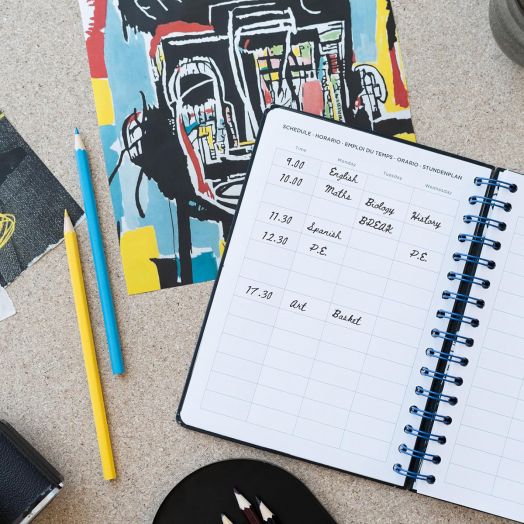 SCHEDULE · HORARIO · EMPLOI DU TEMPS · ORARIO · STUNDENPLAN
Time Monday Tuesday Wednesday
9.00 English
10.00 Maths Biology History
BREAK
11.30 Spanish P.E.
12.30 P.E.
17.30 Art Basket